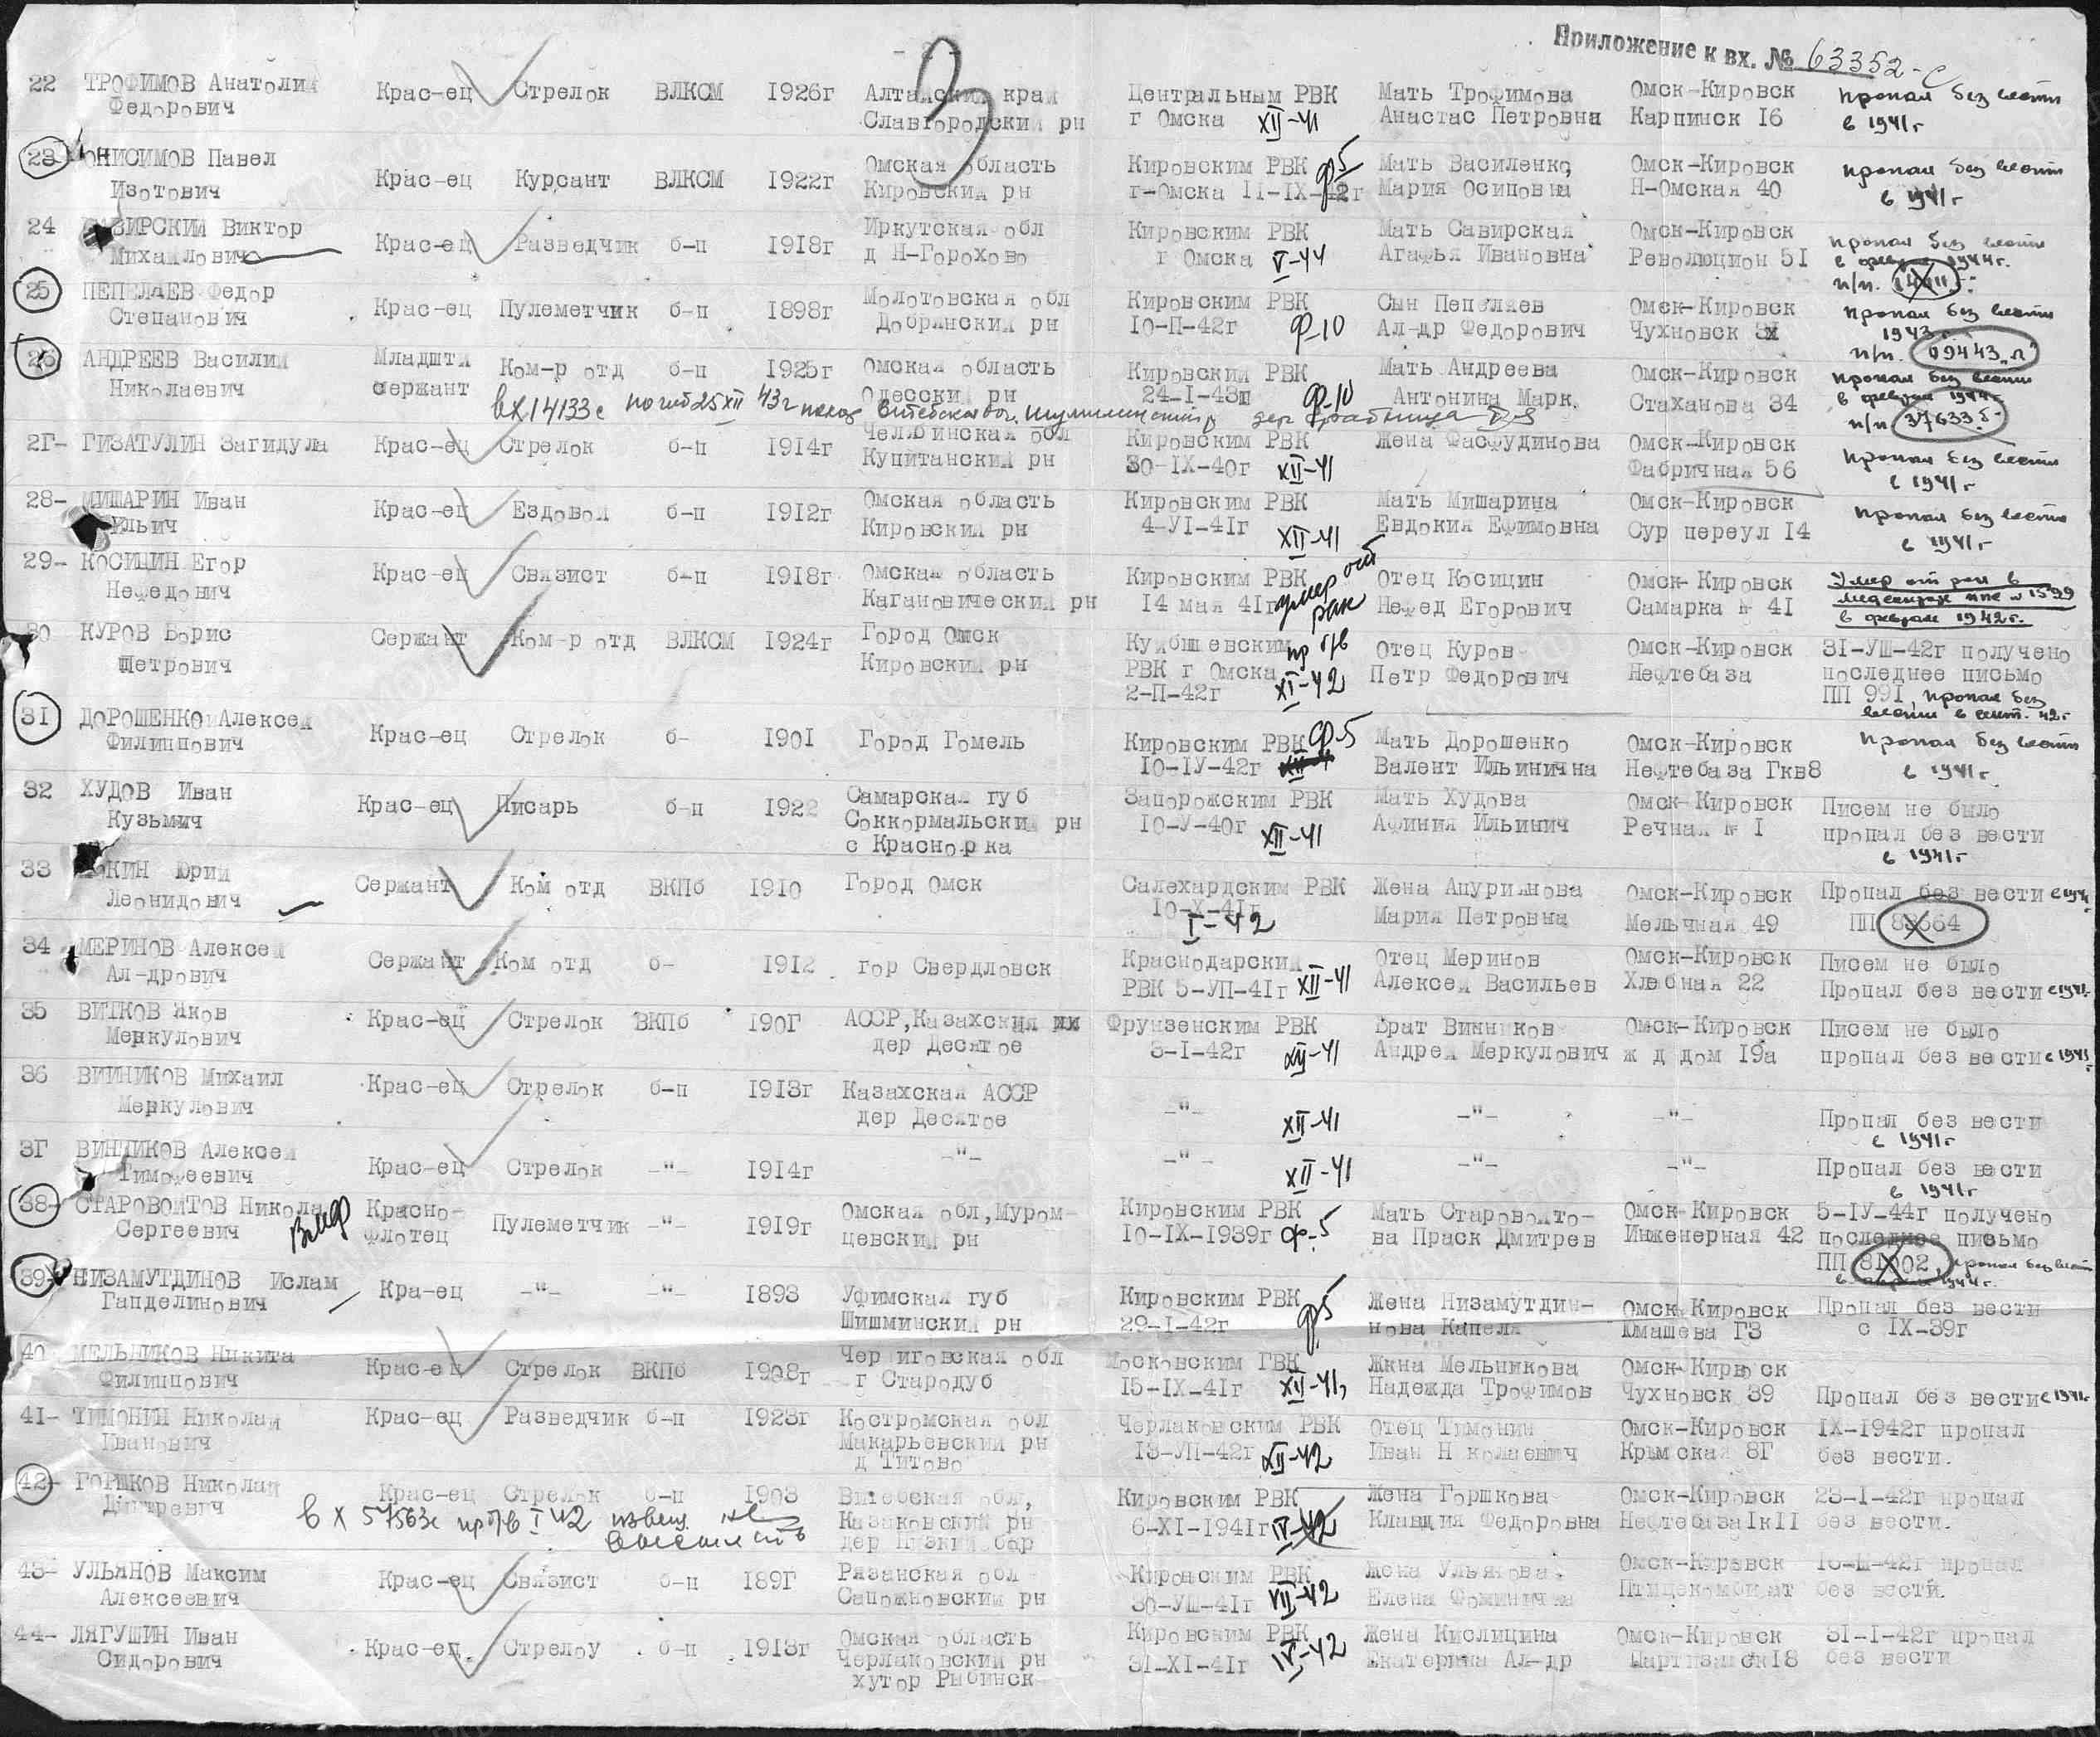 - 2 -
Приложение к вх. № 63352-с
22 ТРОФИМОВ Анатолий Крас-ец Стрелок ВЛКСМ 1926г Алтайский край Центральным РВК Мать Трофимова Омск-Кировск пропал без вести
Федорович Славгородский рн г Омска XII-41 Анастас Петровна Карпинск 16 в 1941г
23 ОНИСИМОВ Павел Крас-ец Курсант ВЛКСМ 1922г Омская область Кировским РВК ф5 Мать Василенко Омск-Кировск пропал без вести
Изотович Кировский рн г-Омска II-IX-42г Мария Осиповна Н-Омская 40 в 1941г
24 ВИРСКИЙ Виктор Крас-ец Разведчик б-п 1918г Иркутская обл Кировским РВК Мать Савирская Омск-Кировск пропал без вести
Михайлович д Н-Горохово г Омска V-44 Агафья Ивановна Революцион 51 в феврале 1944г.
п/п.
25 ПЕПЕЛЯЕВ Федор Крас-ец Пулеметчик б-п 1898г Молотовская обл Кировским РВК Сын Пепеляев Омск-Кировск пропал без вести
Степанович Добрянский рн 10-П-42г ф-10 Ал-др Федорович Чухновск 1943
п/п. 09443 "п"
26 АНДРЕЕВ Василий Младший Ком-р отд б-п 1925г Омская область Кировский РВК Мать Андреева Омск-Кировск пропал без вести
Николаевич сержант Одесский рн 24-I-43г ф-10 Антонина Марк. Стаханова 34 в феврале 1944г
вх 14133с погиб 25 XII 43г дер п/п 37633.б
2Г- ГИЗАТУЛИН Загидула Крас-ец Стрелок б-п 1914г Челябинская обл Кировским РВК Жена Фасфудинова Омск-Кировск пропал без вести
Купитанский рн 30-IX-40г XII-41 Фабричная 56 в 1941г
28- МИШАРИН Иван Крас-ец Ездовой б-п 1912г Омская область Кировским РВК Мать Мишарина Омск-Кировск пропал без вести
Ильич Кировский рн 4-УI-41г XII-41 Евдокия Ефимовна Сур переул 14 в 1941г
29- КОСИЦИН Егор Крас-ец Связист б-п 1918г Омская область Кировским РВК Отец Косицин Омск-Кировск Умер от ран в
Нефедович Кагановический рн 14 мая 41г умер от ран Нефед Егорович Самарка № 41 медсанбат ппс № 1599
в феврале 1942г.
30 КУРОВ Борис Сержант Ком-р отд ВЛКСМ 1924г Город Омск Куйбышевским пр б/в Отец Куров Омск-Кировск 31-УШ-42г получено
Петрович Кировский рн РВК г Омска Петр Федорович Нефтебаза последнее письмо
2-П-42г XI-42 ПП 991, пропал без
вести в сент. 42г
31 ДОРОШЕНКО Алексей Крас-ец Стрелок б- 1901 Город Гомель Кировским РВК ф5 Мать Дорошенко Омск-Кировск пропал без вести
Филиппович 10-IУ-42г Валент Ильинична Нефтебаза Гкв8 в 1941г
32 ХУДОВ Иван Крас-ец Писарь б-п 1922 Самарская губ Запорожским РВК Мать Худова Омск-Кировск Писем не было
Кузьмич Соккормальский рн 10-У-40г XII-41 Афиния Ильинич Речная № I пропал без вести
с Краснорка в 1941г
33 КИН Юрий Сержант Ком отд ВКПб 1910 Город Омск Салехардским РВК Жена Апуриянова Омск-Кировск Пропал без вести
Леонидович 10-X-41г I-42 Мария Петровна Мельчная 49 ПП
34 МЕРИНОВ Алексей Сержант Ком отд б- 1912 гор Свердловск Краснодарский Отец Меринов Омск-Кировск Писем не было
Ал-дрович РВК 5-УП-41г XII-41 Алексей Васильев Хлебная 22 Пропал без вести в 1941г
35 ВИТКОВ Яков Крас-ец Стрелок ВКПб 190Г АССР, Казахский Фрунзенским РВК Брат Винников Омск-Кировск Писем не было
Меркулович дер Десятое 3-I-42г XII-41 Андрей Меркулович ж д дом 19а пропал без вести в 1941
36 ВИННИКОВ Михаил Крас-ец Стрелок б-п 1913г Казахская АССР -"- -"- -"- Пропал без вести
Меркулович дер Десятое XII-41 в 1941г
3Г ВИННИКОВ Алексей Крас-ец Стрелок -"- 1914г -"- -"- -"- -"- Пропал без вести
Тимофеевич XII-41 в 1941г
38- СТАРОВОИТОВ Николай Красно- Пулеметчик -"- 1919г Омская обл, Муром- Кировским РВК Мать Старовойто- Омск-Кировск 5-IУ-44г получено
Сергеевич флотец цевский рн 10-IX-1939г ф-5 ва Праск Дмитрев Инженерная 42 последнее письмо
ПП 81502, пропал без вести
в апреле 1944г.
39- НИЗАМУТДИНОВ Ислам Кра-ец -"- -"- 1893 Уфимская губ Кировским РВК ф5 Жена Низамутдин- Омск-Кировск Пропал без вести
Гапделинович Шишминский рн 29-I-42г нова Капеля Юмашева Г3 с IX-39г
40 МЕЛЬНИКОВ Никита Крас-ец Стрелок ВКПб 1908г Черниговская обл Московским ГВК Жкна Мельникова Омск-Кировск
Филиппович г Стародуб 15-IX-41г XII-41, Надежда Трофимов Чухновск 39 Пропал без вести в 1941г
41- ТИМОНИН Николай Крас-ец Разведчик б-п 1923г Костромская обл Черлаковским РВК Отец Тимонин Омск-Кировск IX-1942г пропал
Иванович Макарьевский рн 13-УП-42г XII-42 Иван Николаевич Крымская 8Г без вести.
д Титово
42- ГОРШКОВ Николай Крас-ец Стрелок б-п 1903 Витебская обл, Кировским РВК Жена Горшкова Омск-Кировск 23-I-42г пропал
Дмитревич Казаковский рн 6-XI-1941г Клавдия Федоровна Нефтебаза1к11 без вести.
вх 57563с пр б/в I 42 извещ.
43- УЛЬЯНОВ Максим Крас-ец Связист б-п 189Г Рязанская обл Кировским РВК Жена Ульянова Омск-Кировск пропал
Алексеевич Сапожковский рн 30-УШ-41г VII-42 Елена Фоминична Птицекомбинат без вести.
44- ЛЯГУШИН Иван Крас-ец Стрелоу б-п 1913г Омская область Кировским РВК Жена Кислицина Омск-Кировск 31-I-42г пропал
Сидорович Черлаковский рн 31-XI-41г IV-42 Екатерина Ал-др Партизанск18 без вести
хутор Рыбинск